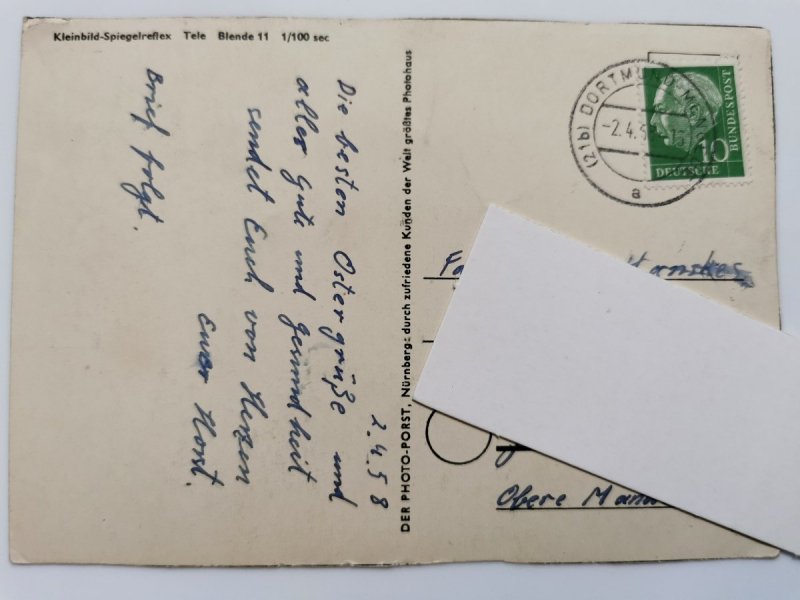 Kleinbild-Spiegelreflex Tele Blende 11 1/100 sec
2.4.58
Die besten Ostergrüße und
alles Gute und Gesundheit
sendet Euch von Herzen
Euer Horst.
Brief folgt.
DER PHOTO-PORST, Nürnberg: durch zufriedene Kunden der Welt größtes Photohaus
(21b) DORTMUND
-2.4.5
a
10
DEUTSCHE
BUNDESPOST
Obere